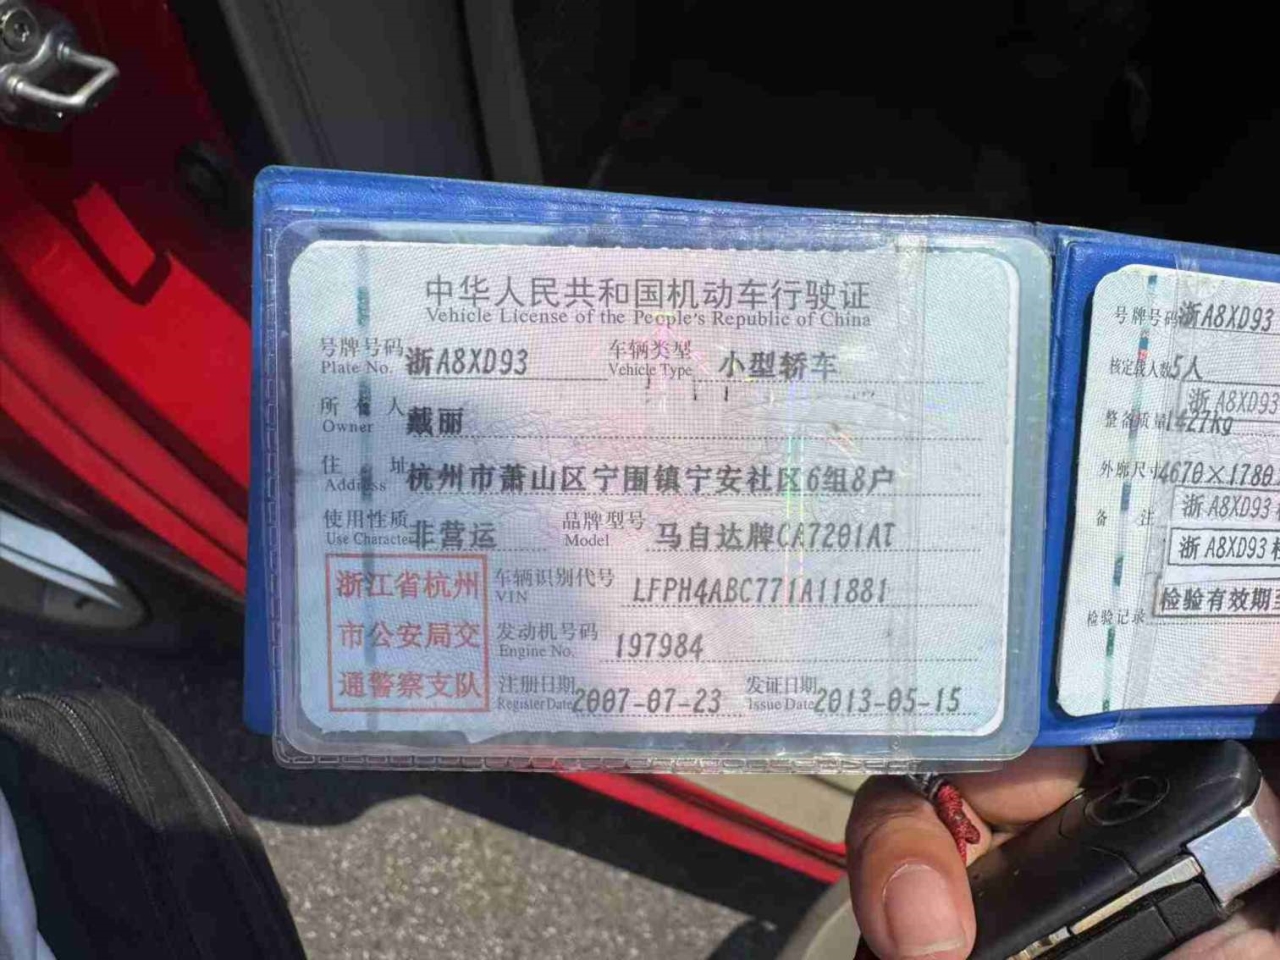 中华人民共和国机动车行驶证
Vehicle License of the People's Republic of China
号牌号码 浙A8XD93 车辆类型 小型轿车
Plate No. Vehicle Type
所有人 戴丽
Owner
住址 杭州市萧山区宁围镇宁安社区6组8户
Address
使用性质 非营运 品牌型号 马自达牌CA7201AT
Use Character Model
浙江省杭州
市公安局交
通警察支队
车辆识别代号 LFPH4ABC771A11881
VIN
发动机号码 197984
Engine No.
注册日期 2007-07-23 发证日期 2013-05-15
Register Date Issue Date
号牌号码 浙A8XD93
核定载人数 5人
浙A8XD93
整备质量 1427kg
外廓尺寸 4670×1780
浙A8XD93
备注
浙A8XD93
检验有效期至
检验记录